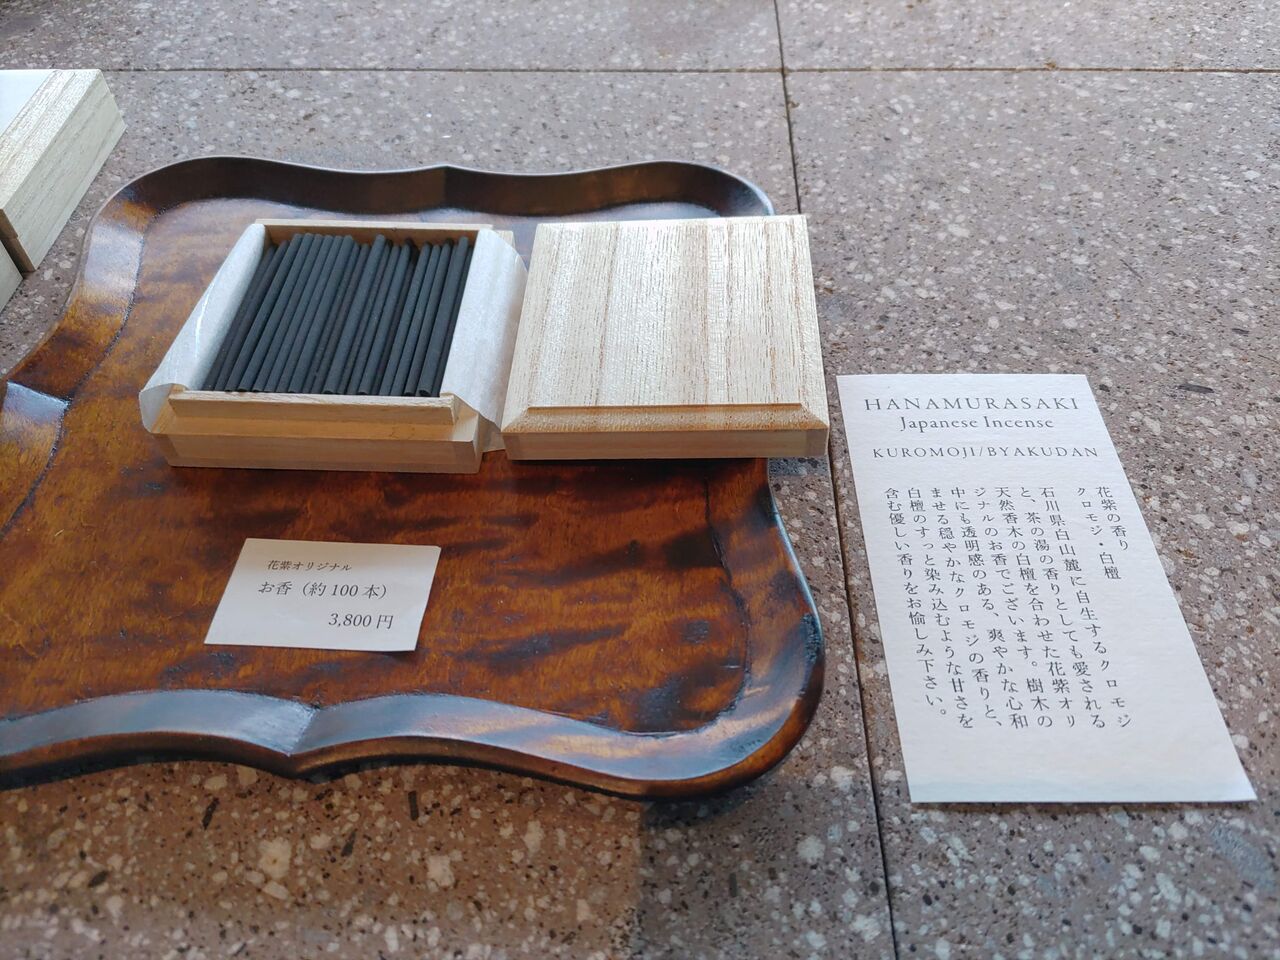 花紫オリジナル
お香（約100本）
3,800円
HANAMURASAKI
Japanese Incense
KUROMOJI/BYAKUDAN
花紫の香り
クロモジ・白檀
石川県白山麓に自生するクロモジ
と、茶の湯の香りとしても愛される
天然香木の白檀を合わせた花紫オリ
ジナルのお香でございます。樹木の
中にも透明感のある、爽やかな心和
ませる穏やかなクロモジの香りと、
白檀のすっと染み込むような甘さを
含む優しい香りをお愉しみ下さい。